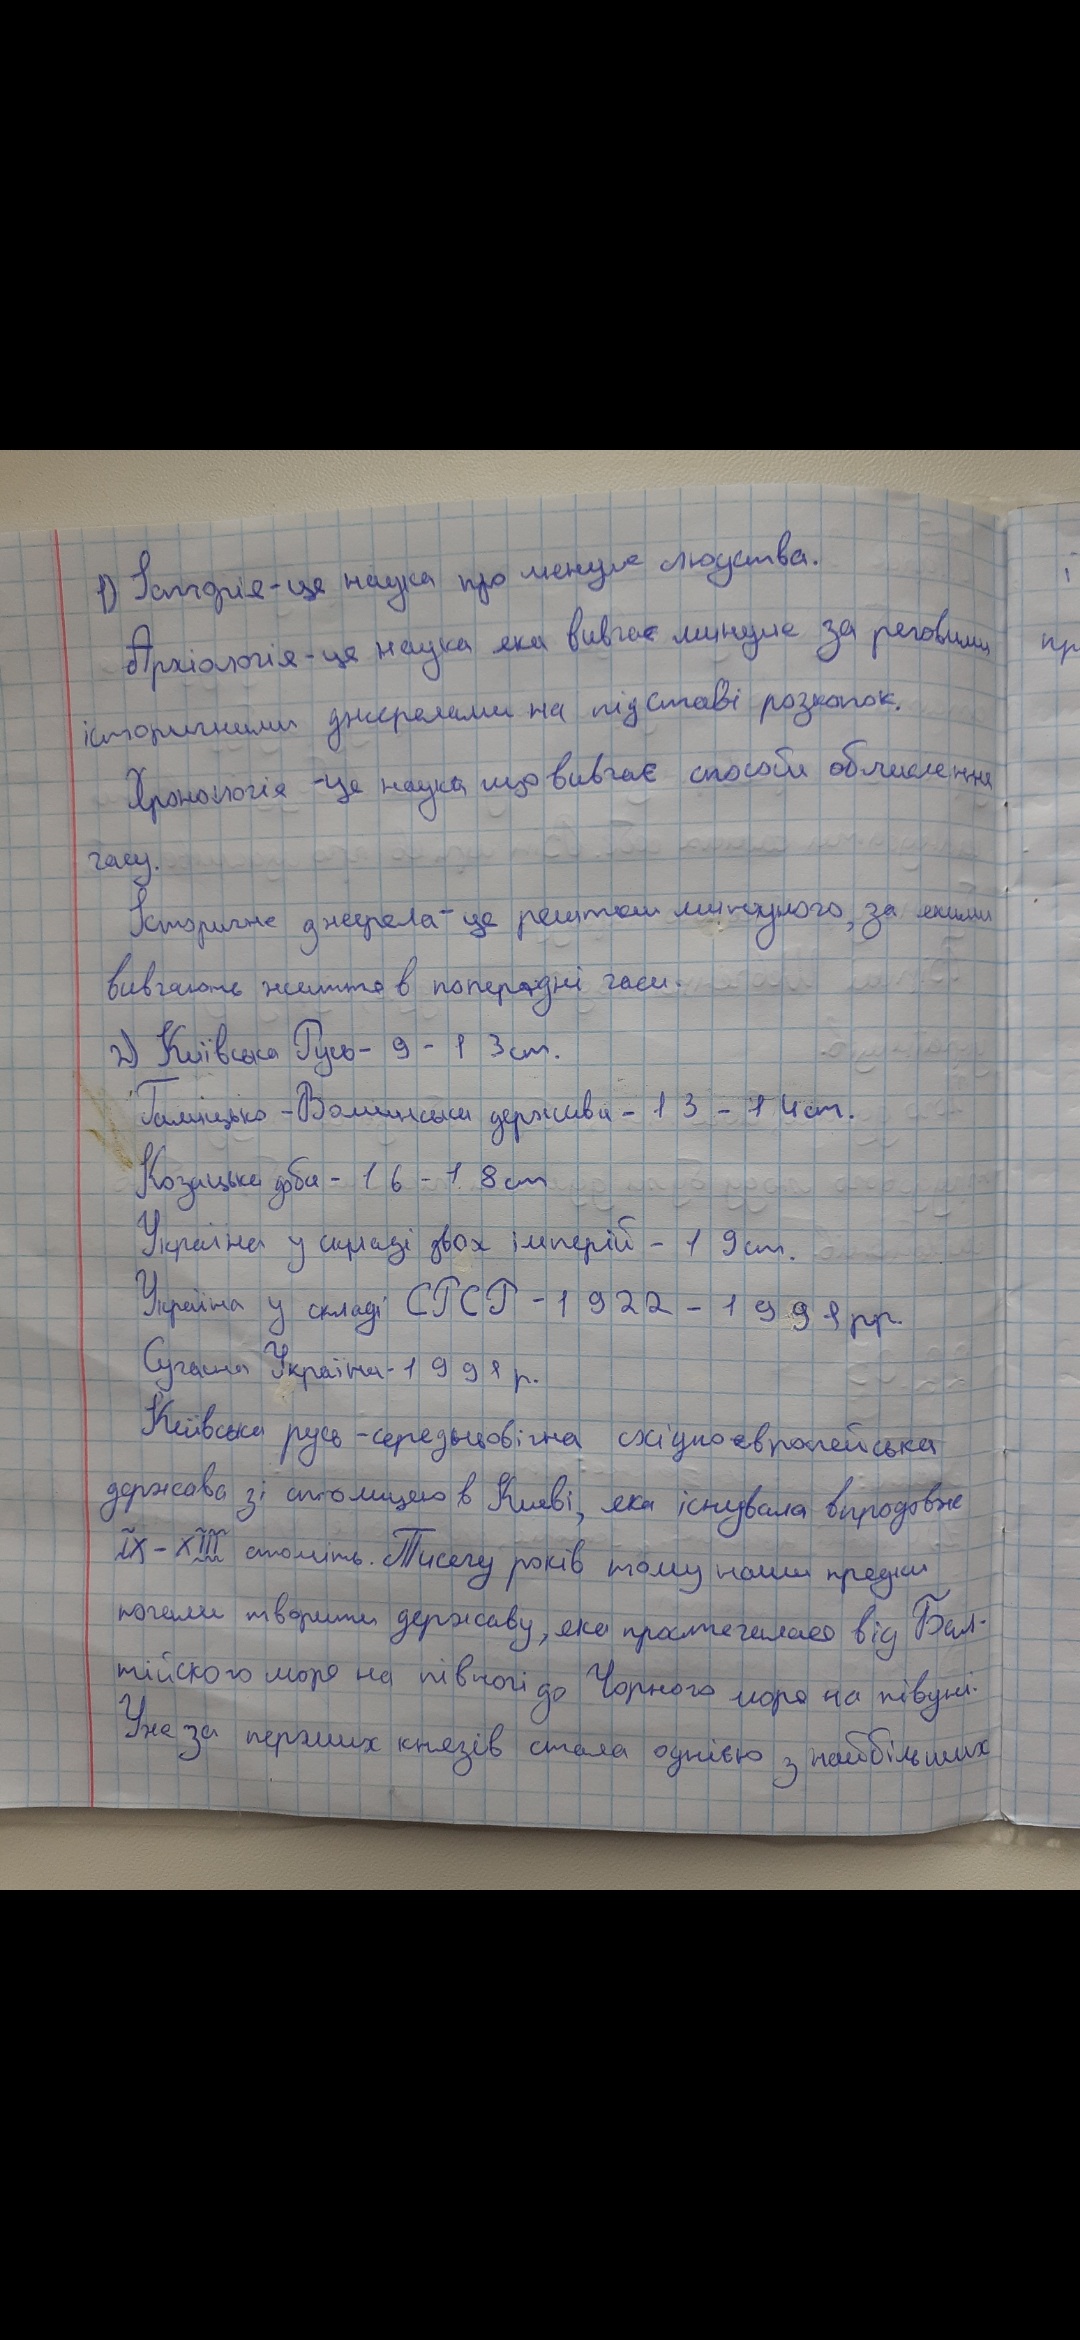 1) Історія-це наука про менуле людства.
Архіологія-це наука яка вивчає минуле за речовими
історичними джерелами на підставі розкопок.
Хронологія -це наука що вивчає способи обчислення
часу.
Історичне джерела-це рештки минулого, за якими
вивчають життя в попередні часи.
2) Київська Русь- 9 - 13ст.
Галицько -Волинська держава - 13 - 14ст.
Козацька доба - 16 - 18ст
Україна у складі двох імперій - 19ст.
Україна у складі СРСР - 1922 - 1991рр.
Сучасна Україна-1991р.
Київська русь -середньовічна східноєвропейська
держава зі столицею в Києві, яка існувала впродовж
ІХ - ХІІІ століть. Тисячу років тому наши предки
почали творити державу, яка простягалася від Бал-
тійского моря на півночі до Чорного моря на півдні.
Уже за перших князів стала однією з найбільших
і
пр